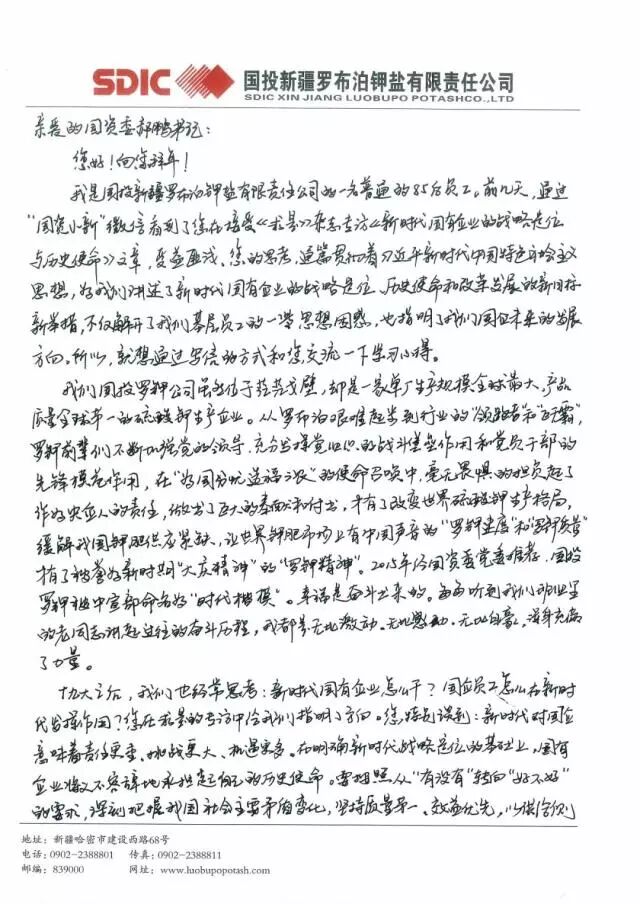 SDIC 国投新疆罗布泊钾盐有限责任公司
SDIC XIN JIANG LUOBUPO POTASHCO.,LTD
亲爱的国资委郝鹏书记：
您好！向您拜年！
我是国投新疆罗布泊钾盐有限责任公司的一名普通的85后员工。前几天，通过
“国资小新”微信看到了您在接受《求是》杂志专访《新时代国有企业的战略定位
与历史使命》文章，受益匪浅。您的思考，通篇贯彻着习近平新时代中国特色社会主义
思想，为我们讲述了新时代国有企业的战略定位、历史使命和改革发展的新目标
新举措，不仅解开了我们基层员工的一些思想困惑，也指明了我们国企未来的发展
方向。所以，就想通过写信的方式和您交流一下学习心得。
我们国投罗钾公司虽然位于茫茫戈壁，却是一家单厂生产规模全球最大，产品
质量全球第一的硫酸钾生产企业。从罗布泊艰难起步到行业的“领跑者”和“王霸”，
罗钾前辈们不断加强党的领导，充分发挥党组织的战斗堡垒作用和党员干部的
先锋模范作用，在“为国分忧造福于农”的使命召唤中，毫无畏惧的担负起了
作为央企人的责任，做出了巨大的奉献和付出，才有了改变世界硫酸钾生产格局，
缓解我国钾肥供应紧缺，让世界钾肥市场上有中国声音的“罗钾速度”和“罗钾质量”
才有了被誉为新时期“大庆精神”的“罗钾精神”。2015年经国资委党委推荐，国投
罗钾被中宣部命名为“时代楷模”。幸福是奋斗出来的。每每听到我们班组里
的老同志讲起过往的奋斗历程，我都是无比激动、无比感动、无比自豪，浑身充满
了力量。
十九大之后，我们也经常思考：新时代国有企业怎么干？国企员工怎么在新时
代发挥作用？您在求是的专访中给我们指明了方向。您特别谈到：新时代对国企
意味着责任更重、挑战更大、机遇更多。在明确新时代战略定位的基础上，国有
企业将义不容辞地承担起自己的历史使命。要按照从“有没有”转向“好不好”
的要求，深刻把握我国社会主要矛盾变化，坚持质量第一、效益优先，以供给侧
地址：新疆哈密市建设西路68号
电话：0902-2388801 传真：0902-2388811
邮编：839000 网址：www.luobupopotash.com